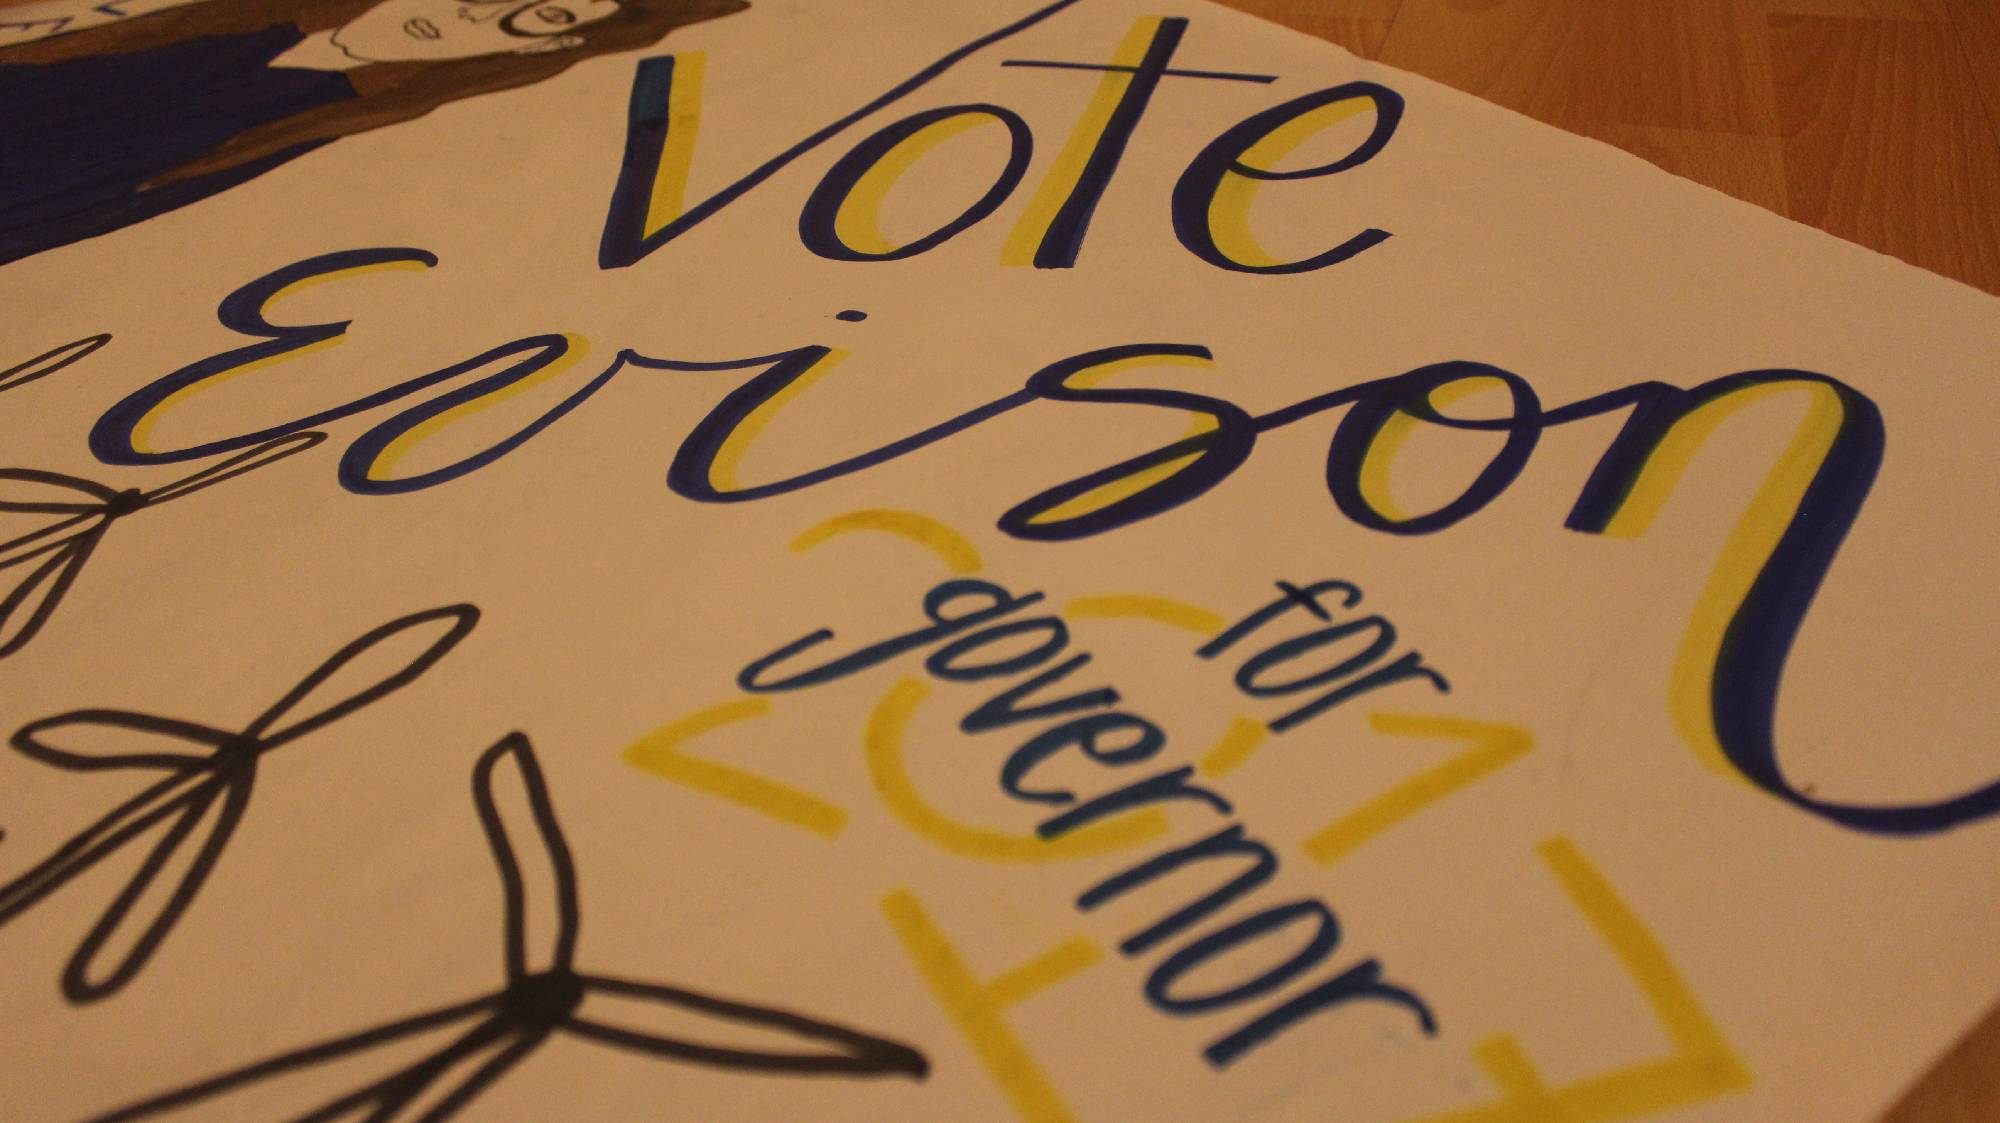 Vote
Evison
for
governor